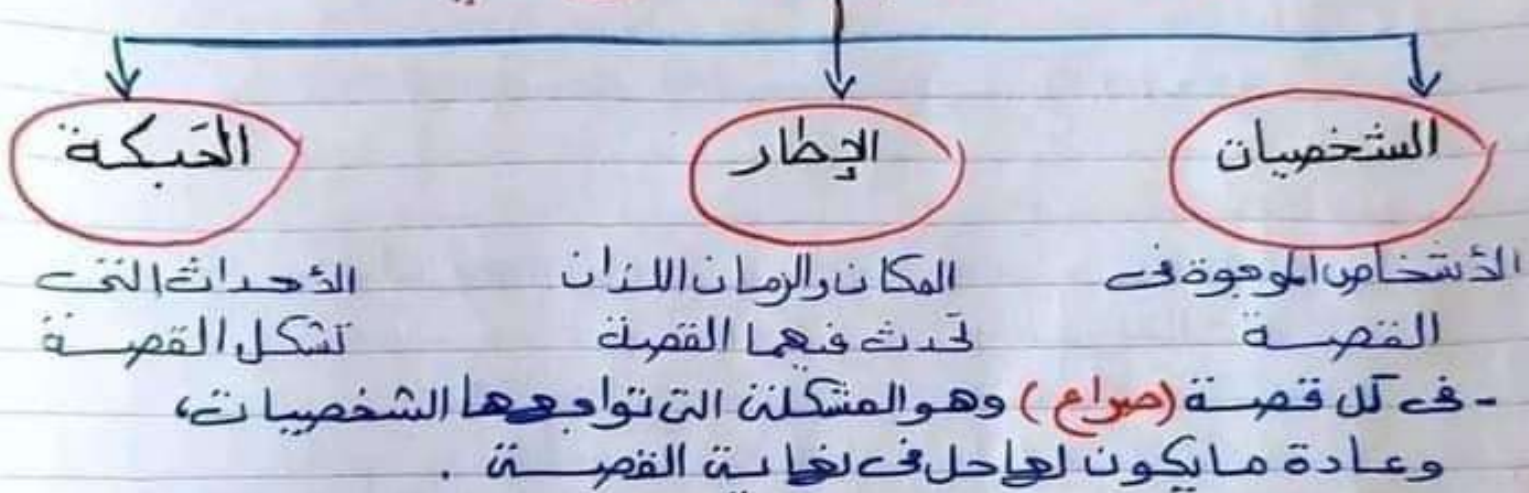 الشخصيات
الإطار
الحَبكة
الأشخاص الموجودة فى
القصة
المكان والزمان اللذان
تحدث فيهما القصة
الأحداث التى
تشكل القصة
- فى كل قصة (صراع) وهو المشكلة التى تواجهها الشخصيات،
وعادة ما يكون لها حل فى نهاية القصة .